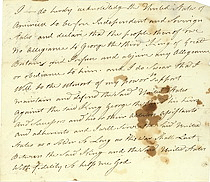 I do hereby acknowledge the United States of
America to be free Independent and Sovereign
States and declare that the people thereof owe
No Allegiance to George the third King of Great
Britain and I renounce refuse and abjure any Allegiance
or obedience to him and I do Swear that I
Will to the utmost of my Power Support
maintain and defend the said United States
against the said King George the third his heirs
and Successors and his or their Abettors Assistants
and adherents and I will Serve the said United
States
Between the said King and the said United States
With fidelity So help me God